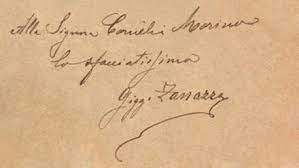 Alla Signora Cornelia Marino
lo sfacciatissimo
Gigi Zanazzo